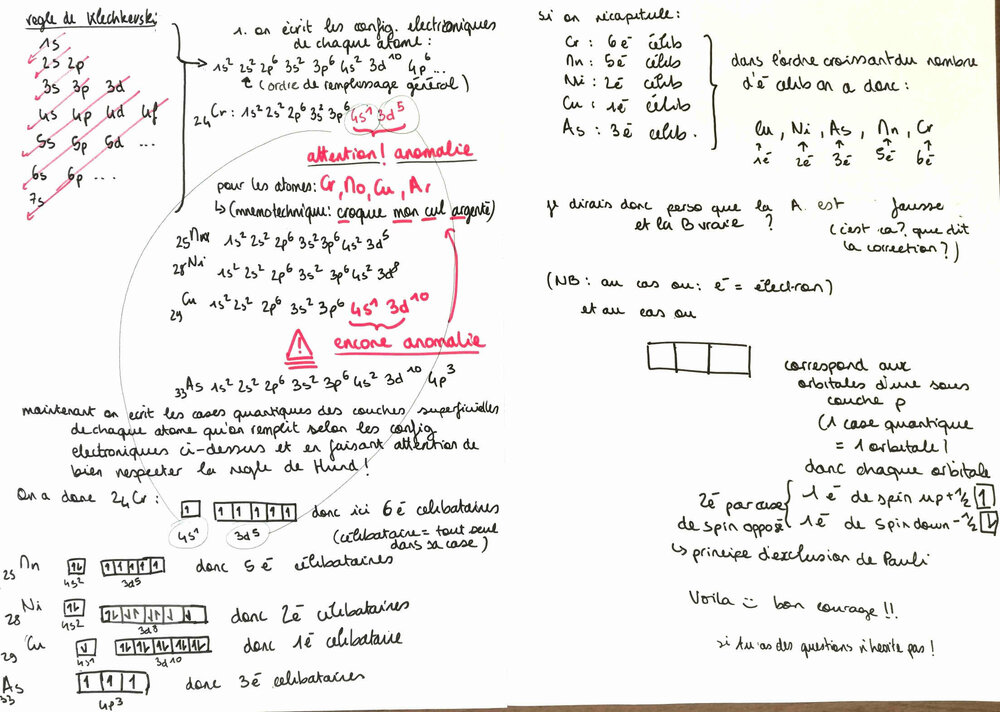 règle de Klechkovski
1s
2s 2p
3s 3p 3d
4s 4p 4d 4f
5s 5p 5d ...
6s 6p ...
7s
1. on écrit les config. électroniques
de chaque atome :
1s² 2s² 2p⁶ 3s² 3p⁶ 4s² 3d¹⁰ 4p⁶ ...
(ordre de remplissage général)
₂₄Cr : 1s² 2s² 2p⁶ 3s² 3p⁶ 4s¹ 3d⁵
attention! anomalie
pour les atomes: Cr, Mo, Cu, Ar
↳ (mnemotechnique: croque mon cul argenté)
₂₅Mn 1s² 2s² 2p⁶ 3s² 3p⁶ 4s² 3d⁵
₂₈Ni 1s² 2s² 2p⁶ 3s² 3p⁶ 4s² 3d⁸
₂₉Cu 1s² 2s² 2p⁶ 3s² 3p⁶ 4s¹ 3d¹⁰
! encore anomalie
₃₃As 1s² 2s² 2p⁶ 3s² 3p⁶ 4s² 3d¹⁰ 4p³
maintenant on écrit les cases quantiques des couches superficielles
de chaque atome qu'on remplit selon les config
electroniques ci-dessus et en faisant attention de
bien respecter la règle de Hund !
On a donc ₂₄Cr :
donc ici 6 é celibataires
4s¹ 3d⁵
(célibataire = tout seul
dans sa case)
₂₅Mn donc 5 é célibataires
4s² 3d⁵
₂₈Ni donc 2é célibataires
4s² 3d⁸
₂₉Cu donc 1é celibataire
4s¹ 3d¹⁰
₃₃As donc 3é celibataires
4p³
si on récapitule :
Cr : 6é célib
Mn : 5é célib
Ni : 2é célib
Cu : 1é célib
As : 3é célib.
dans l'ordre croissant du nombre
d'é celib on a donc :
Cu, Ni, As, Mn, Cr
1é 2é 3é 5é 6é
je dirais donc perso que la A. est fausse
et la B vraie ? (c'est ça? que dit
la correction?)
(NB : au cas ou : é = électron)
et au cas ou
correspond aux
orbitales d'une sous
couche p
(1 case quantique
= 1 orbitale)
donc chaque orbitale
2é par case
de spin opposé
1 é de spin up +½
1 é de spin down -½
↳ principe d'exclusion de Pauli
Voila :) bon courage !!
si tu as des questions n'hésite pas !